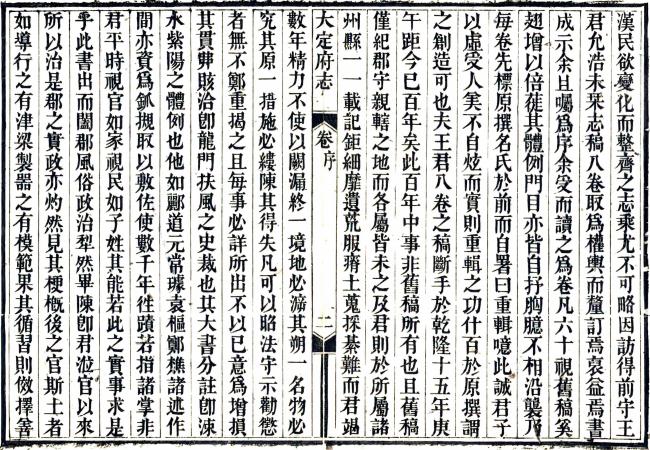 漢民欲變化而整齊之志乘尤不可略因訪得前守王
君允浩未栞志稿八卷取爲權輿而釐訂焉裒益焉書
成示余且囑爲序余受而讀之爲卷凡六十視舊稿奚
翅增以倍蓰其體例門目亦皆自抒胸臆不相沿襲乃
每卷先標原撰名氏於前而自署曰重輯噫此誠君子
以虛受人矣不自炫而實則重輯之功什百於原撰謂
之創造可也夫王君八卷之稿斷手於乾隆十五年庚
午距今已百年矣此百年中事非舊稿所有也且舊稿
僅紀郡守親轄之地而各屬皆未之及君則於所屬諸
州縣一一載記鉅細靡遺荒服瘠土蒐採綦難而君竭
大定府志 卷序 二
數年精力不使以闕漏終一境地必溯其朔一名物必
究其原一措施必縷陳其得失凡可以昭法守示勸懲
者無不鄭重揭之且每事必詳所出不以已意爲增損
其貫串賅洽卽龍門扶風之史裁也其大書分註卽涑
水紫陽之體例也他如酈道元當璩袁樞鄭樵諸述作
間亦資爲鈲摫取以敷佐使數千年往蹟若指諸掌非
君平時視官如家視民如子姓其能若此之實事求是
乎此書出而闔郡風俗政治犁然畢陳卽君涖官以來
所以治是郡之實政亦灼然見其梗槪後之官斯土者
如導行之有津梁製器之有模範果其循習則傚擇善